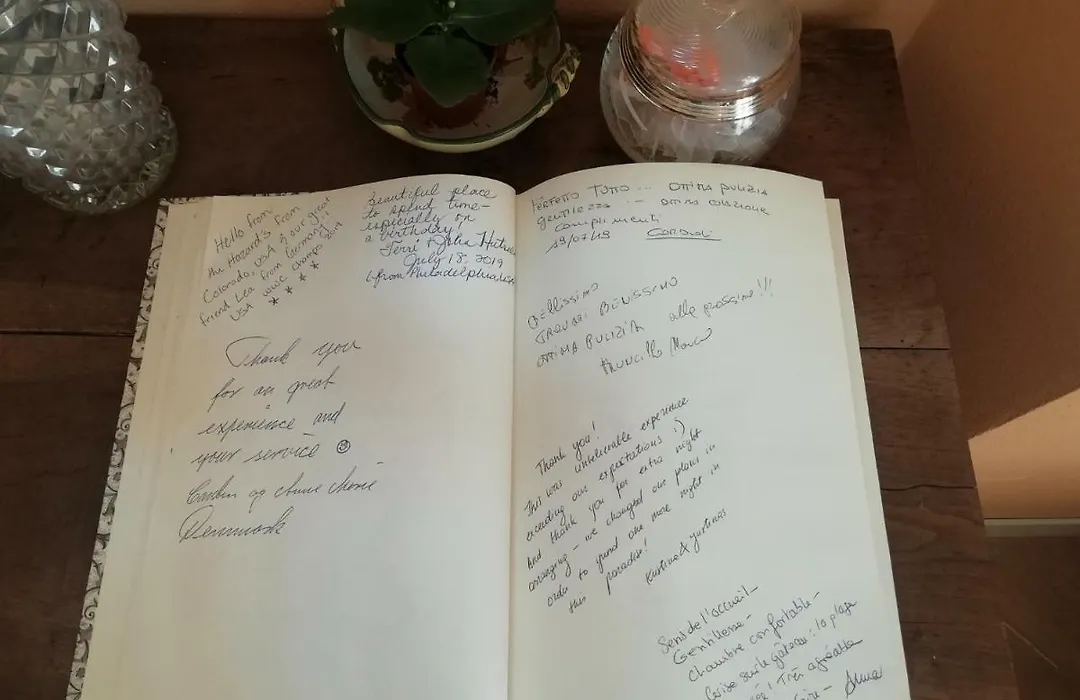 Hello from
the Hazard's from
Colorado, USA & our great
friend Lea from Germany!!
USA WWC champs 2019
Beautiful place
to spend time -
especially on
a birthday!
Terri & Julia
July 18, 2019
(from Philadelphia, USA
Thank you
for an great
experience and
your service ☺
og
Denmark
PERFETTO TUTTO ... OTTIMA PULIZIA
gentilezza ... OTTIMA COLAZIONE
complimenti
19/07/19
BELLISSIMO
TROVATI BENISSIMO
OTTIMA PULIZIA alla prossima!!!
Thank you!
This was unbelievable experience
exceeding our expectations :)
And thank you for extra night
arranging - we changed our plans in
order to spend one more night in
this paradise!
& Justinas
Sens de l'accueil -
Gentillesse -
Chambre confortable -
Cerise sur le gâteau : la plage
! Très agréable
Anna